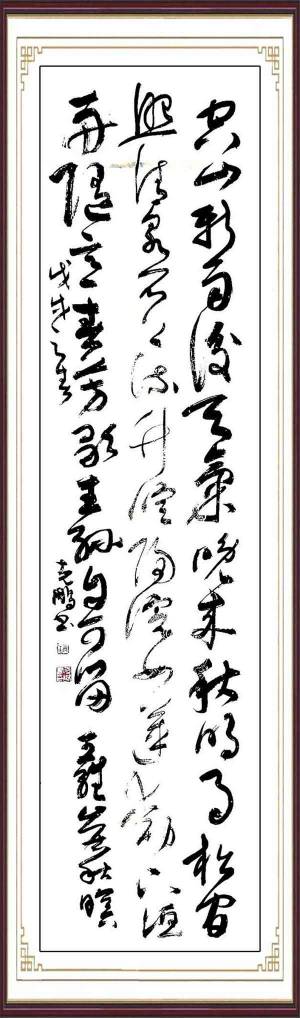 空山新雨後天氣晚來秋明月松間
照清泉石上流竹喧歸浣女蓮動下漁
舟隨意春芳歇王孫自可留 王維山居秋暝
戊戌之春
鵬書